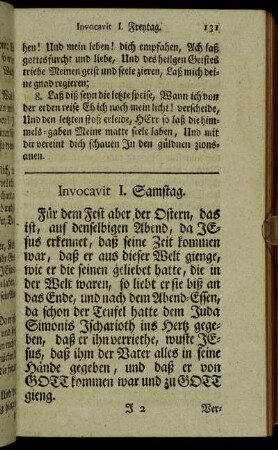 Invocavit I. Freytag. 131
hen! Und mein leben! dich empfahen, Ach laß
gottesfurcht und liebe, Und des heilgen Geistes
triebe Meinen geist und seele zieren, Laß mich dei-
ne gnad regieren;
8. Laß diß seyn die letzte speise, Wann ich von
der erden reise Eh ich noch mein licht! verscheide,
Und den letzten stoß erleide, HErr so laß die him-
mels-gaben Meine matte seele laben, Und mit
dir vereint dich schauen In den güldnen zions-
auen.
Invocavit I. Samstag.
Für dem Fest aber der Ostern, das
ist, auf denselbigen Abend, da JE-
sus erkennet, daß seine Zeit kommen
war, daß er aus dieser Welt gienge,
wie er die seinen geliebet hatte, die in
der Welt waren, so liebt er sie biß an
das Ende, und nach dem Abend-Essen,
da schon der Teufel hatte dem Juda
Simonis Ischarioth ins Hertz gege-
ben, daß er ihn verriethe, wuste JE-
sus, daß ihm der Vater alles in seine
Hände gegeben, und daß er von
GOTT kommen war und zu GOTT
gieng.
J 2 Ver-